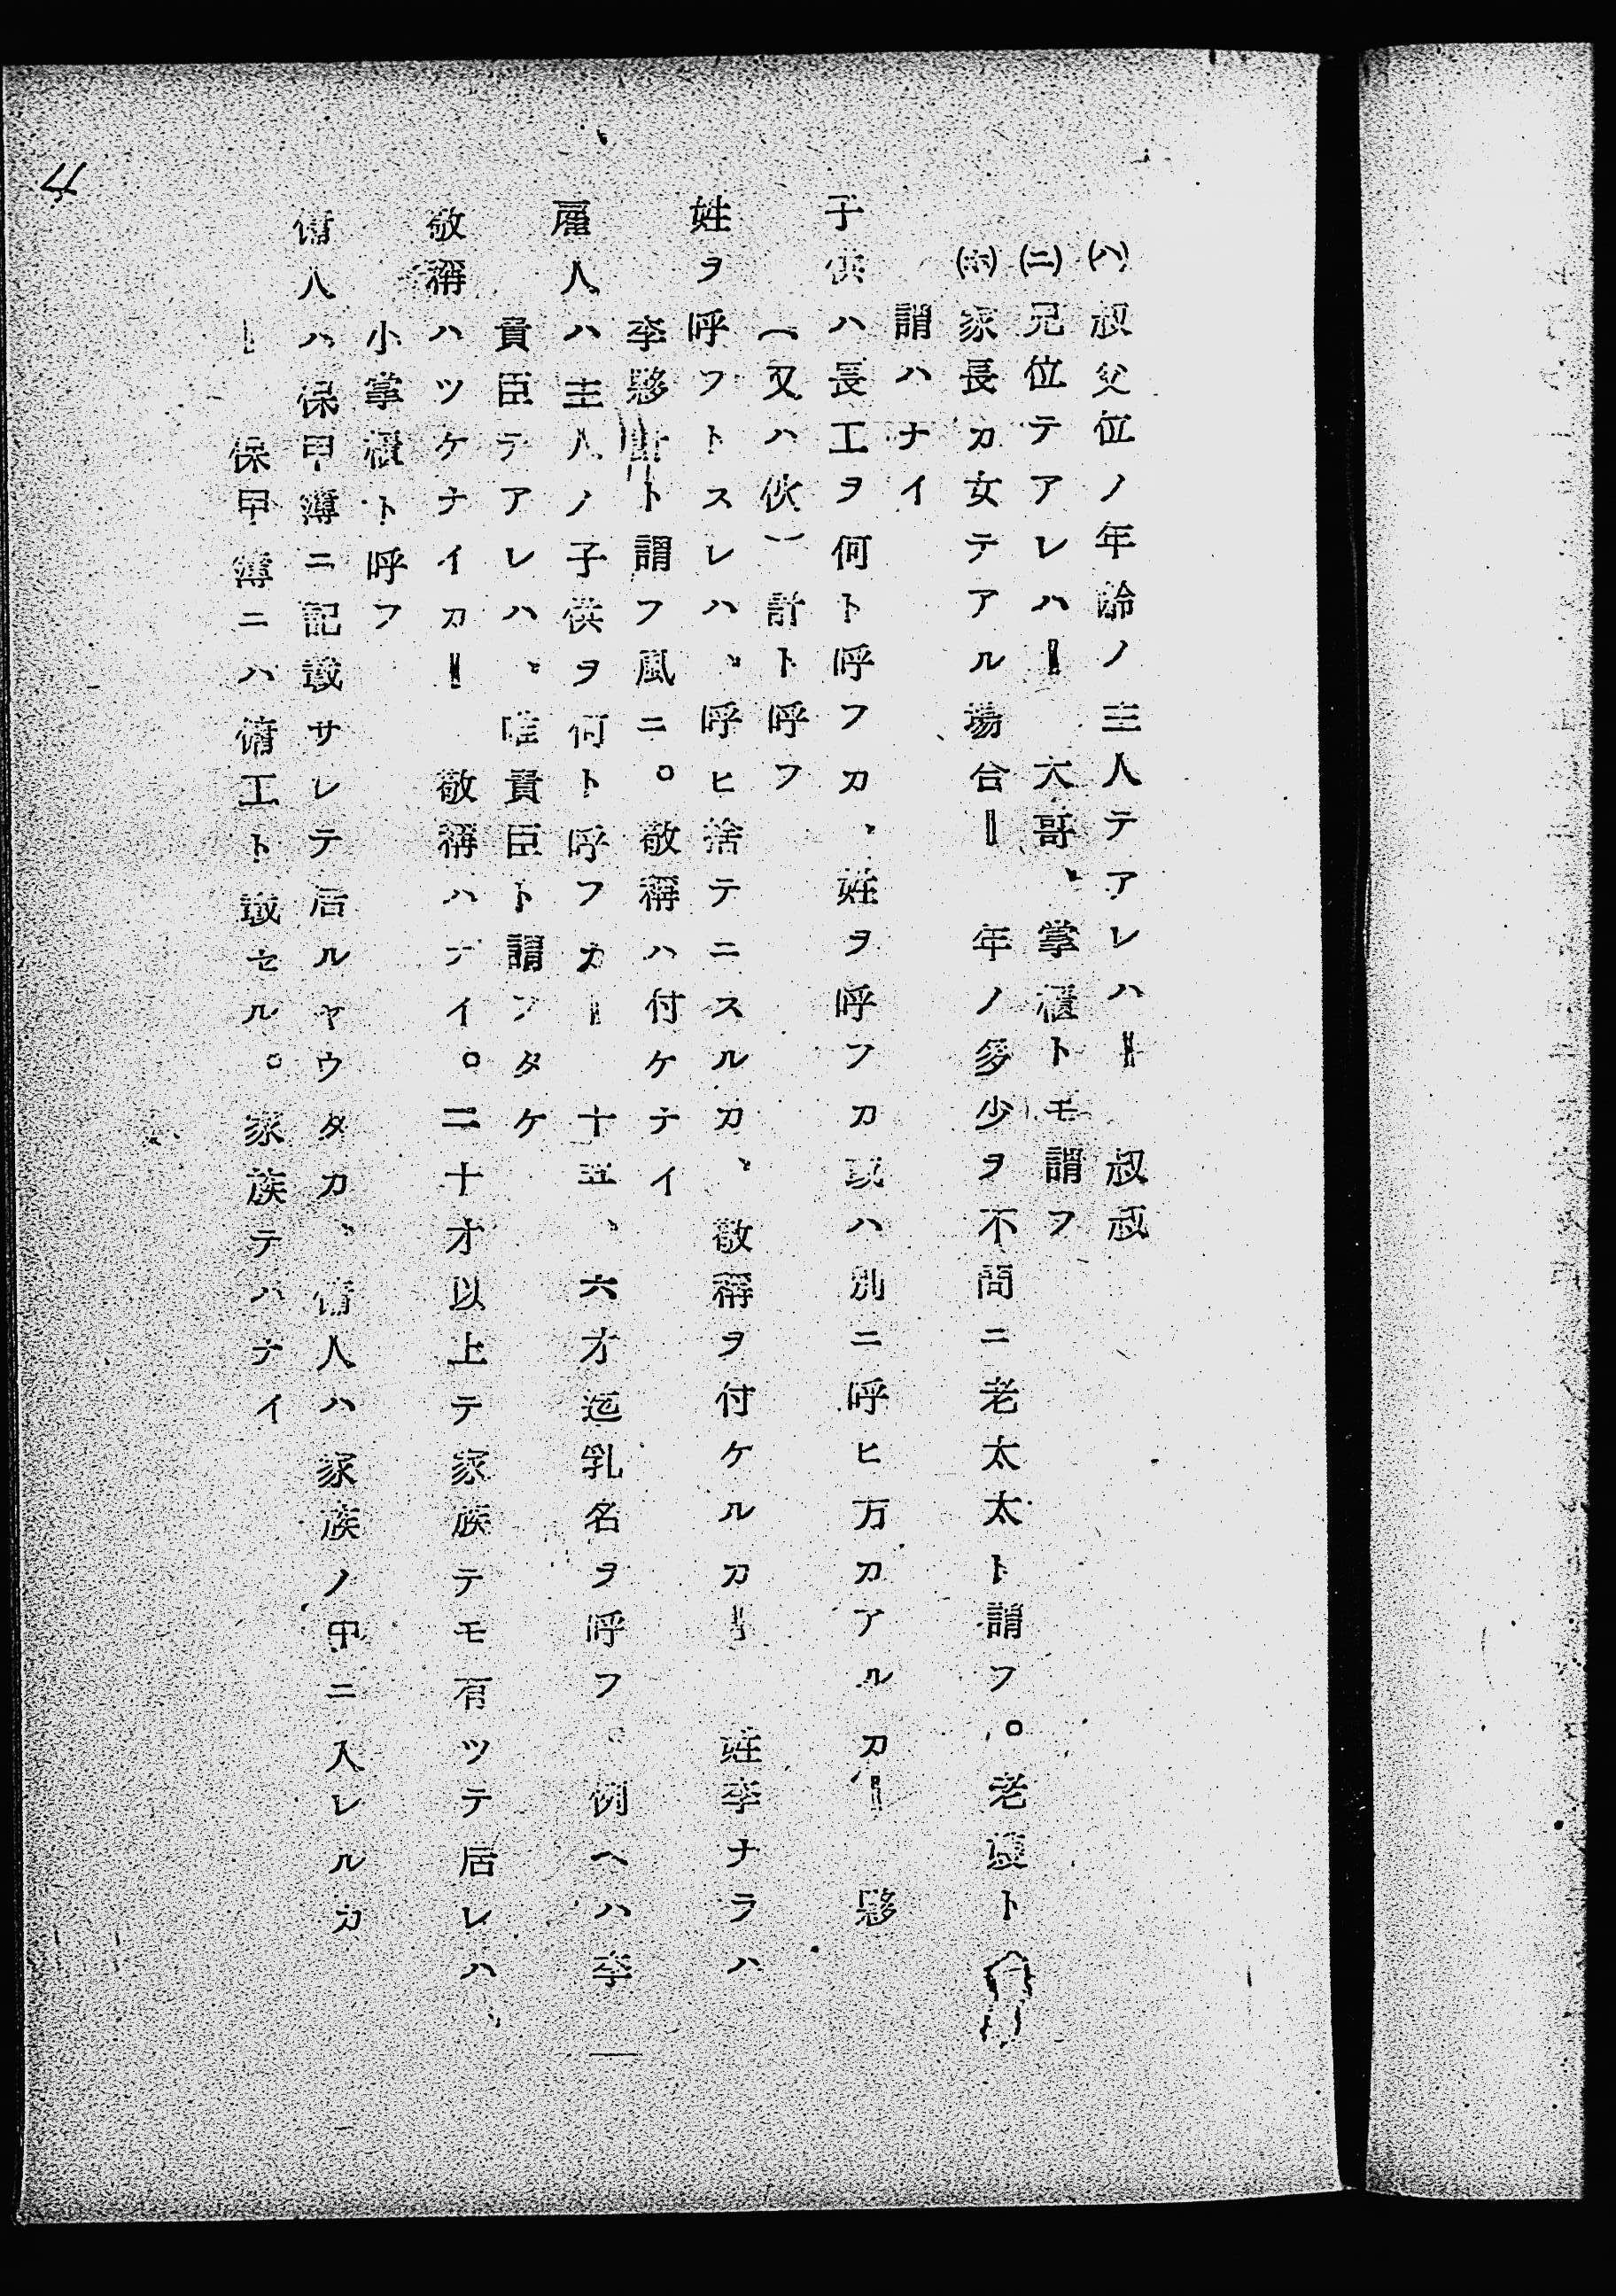 (ハ)叔父位ノ年齢ノ主人テアレハ‖　叔叔
(ニ)兄位テアレハ‖　大哥、掌櫃トモ謂フ
(ホ)家長カ女テアル場合‖　年ノ多少ヲ不問ニ老太太ト謂フ。老ト
謂ハナイ
子供ハ長工ヲ何ト呼フカ、姓ヲ呼フカ或ハ別ニ呼ヒ方カアルカ‖　夥
(又ハ伙)計ト呼フ
姓ヲ呼フトスレハ、呼ヒ捨テニスルカ、敬稱ヲ付ケルカ‖　姓李ナラハ
李夥計ト謂フ風ニ。敬稱ハ付ケナイ
雇人ハ主人ノ子供ヲ何ト呼フカ‖　十五、六才迄乳名ヲ呼フ。例ヘハ李
貴臣テアレハ、唯貴臣ト謂フタケ
敬稱ハツケナイカ‖　敬稱ハナイ。二十才以上テ家族テモ有ツテ居レハ、
小掌櫃ト呼フ
傭人ハ保甲簿ニ記載サレテ居ルヤウタカ、傭人ハ家族ノ中ニ入レルカ
‖　保甲簿ニハ傭工ト載セル。家族テハナイ
4